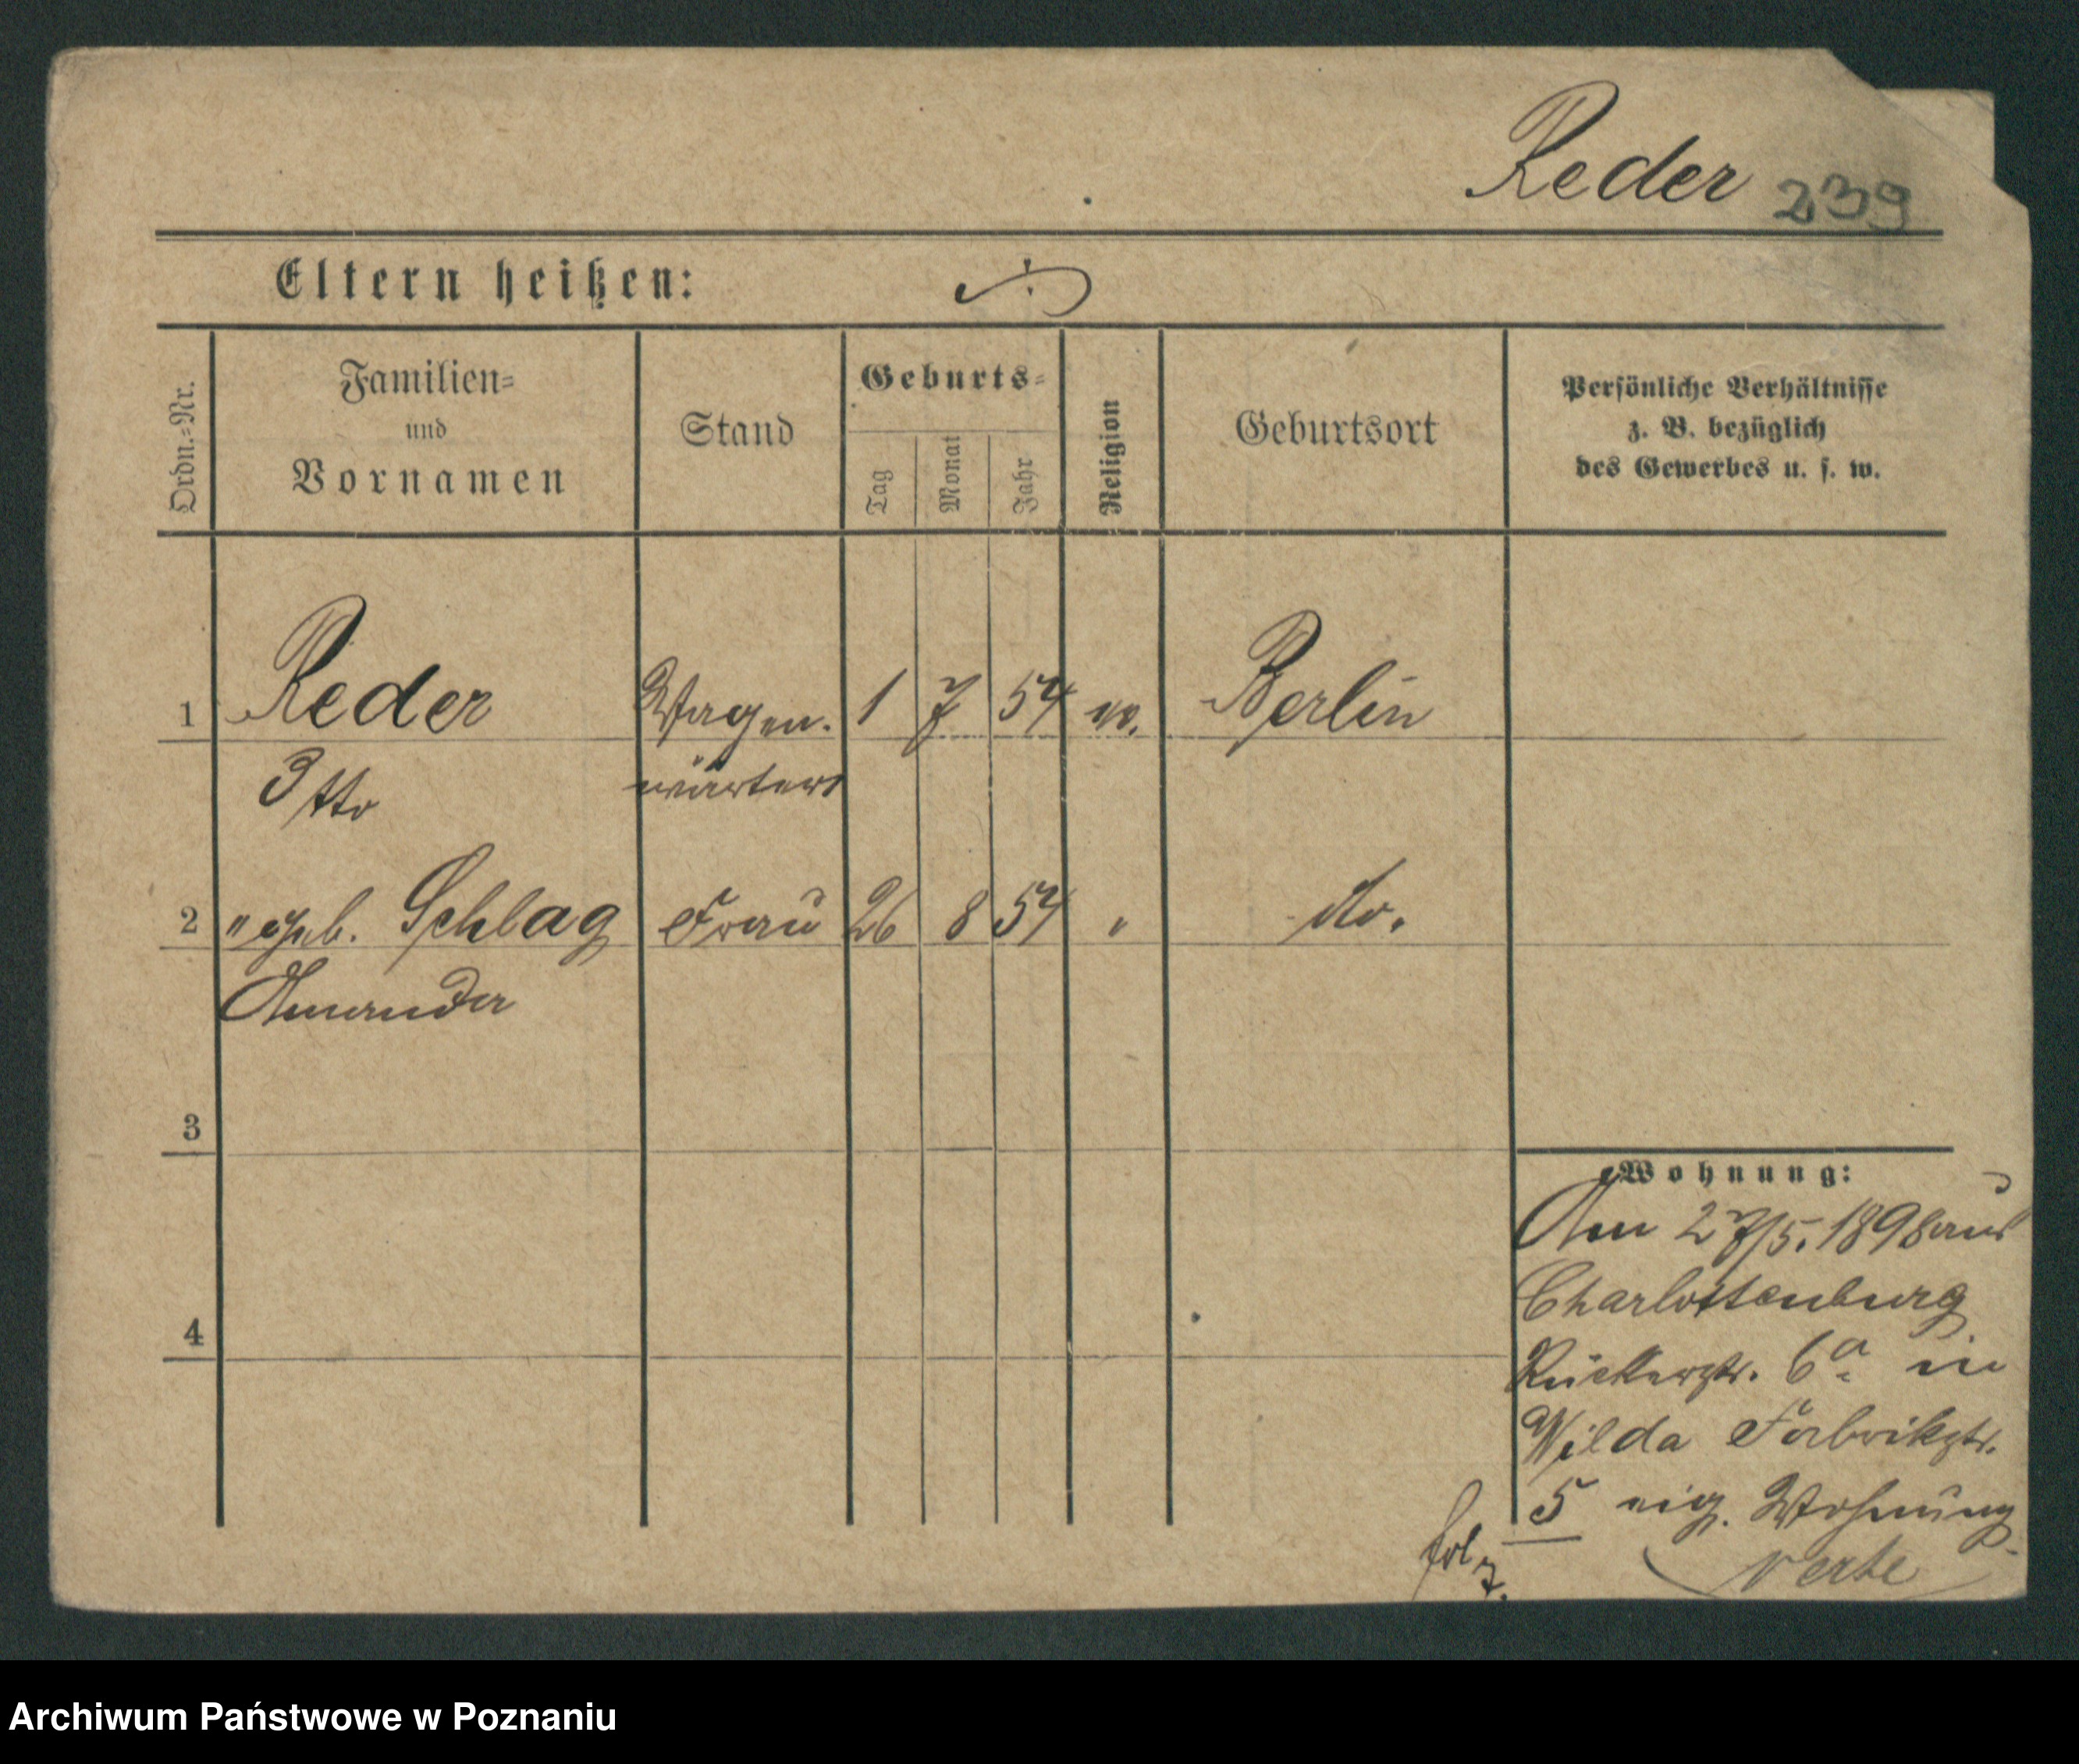 Reder 239
Eltern heißen:
Ordn.=Nr.
Familien=
und
Vornamen
Stand
Geburts=
Tag
Monat
Jahr
Religion
Geburtsort
Persönliche Verhältnisse
z. B. bezüglich
des Gewerbes u. s. w.
1 Reder Wagen. 1 7 54 Berlin
Otto wärter
2 " geb. Schlag Frau 26 8 54 " do.
Amanda
3
4
Wohnung:
Am 27/5. 1898 aus
Charlottenburg
Rückerstr. 6a in
Wilda Fabrikstr.
5 eig. Wohnung
verte
fol 7.
Archiwum Państwowe w Poznaniu